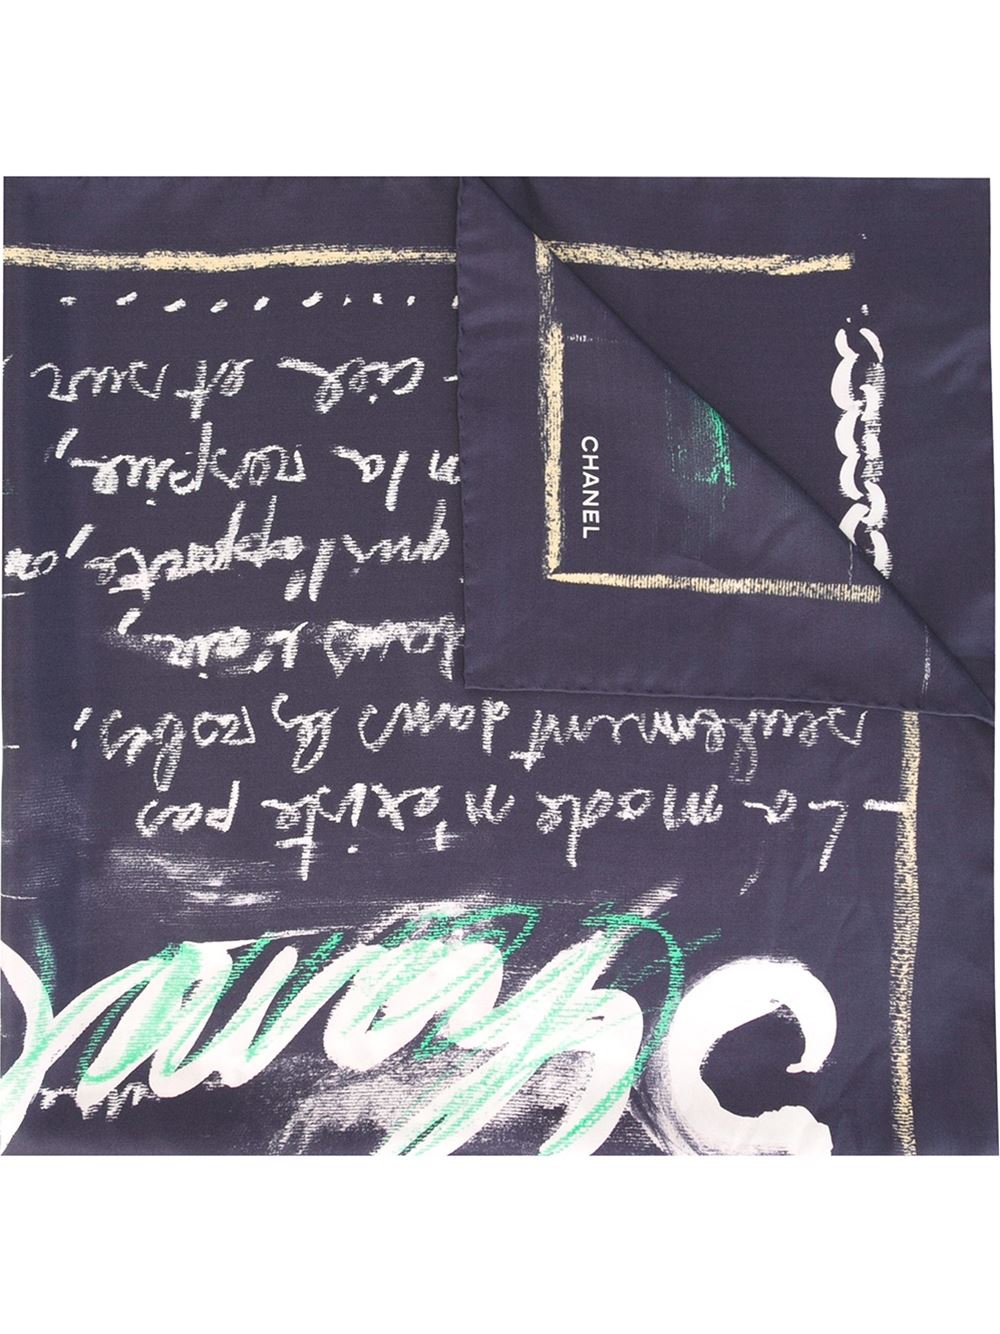 - La mode n'existe pas
seulement dans les robes;
dans l'air,
qui l'apporte, on
la respire,
ciel et sur
..............
CHANEL